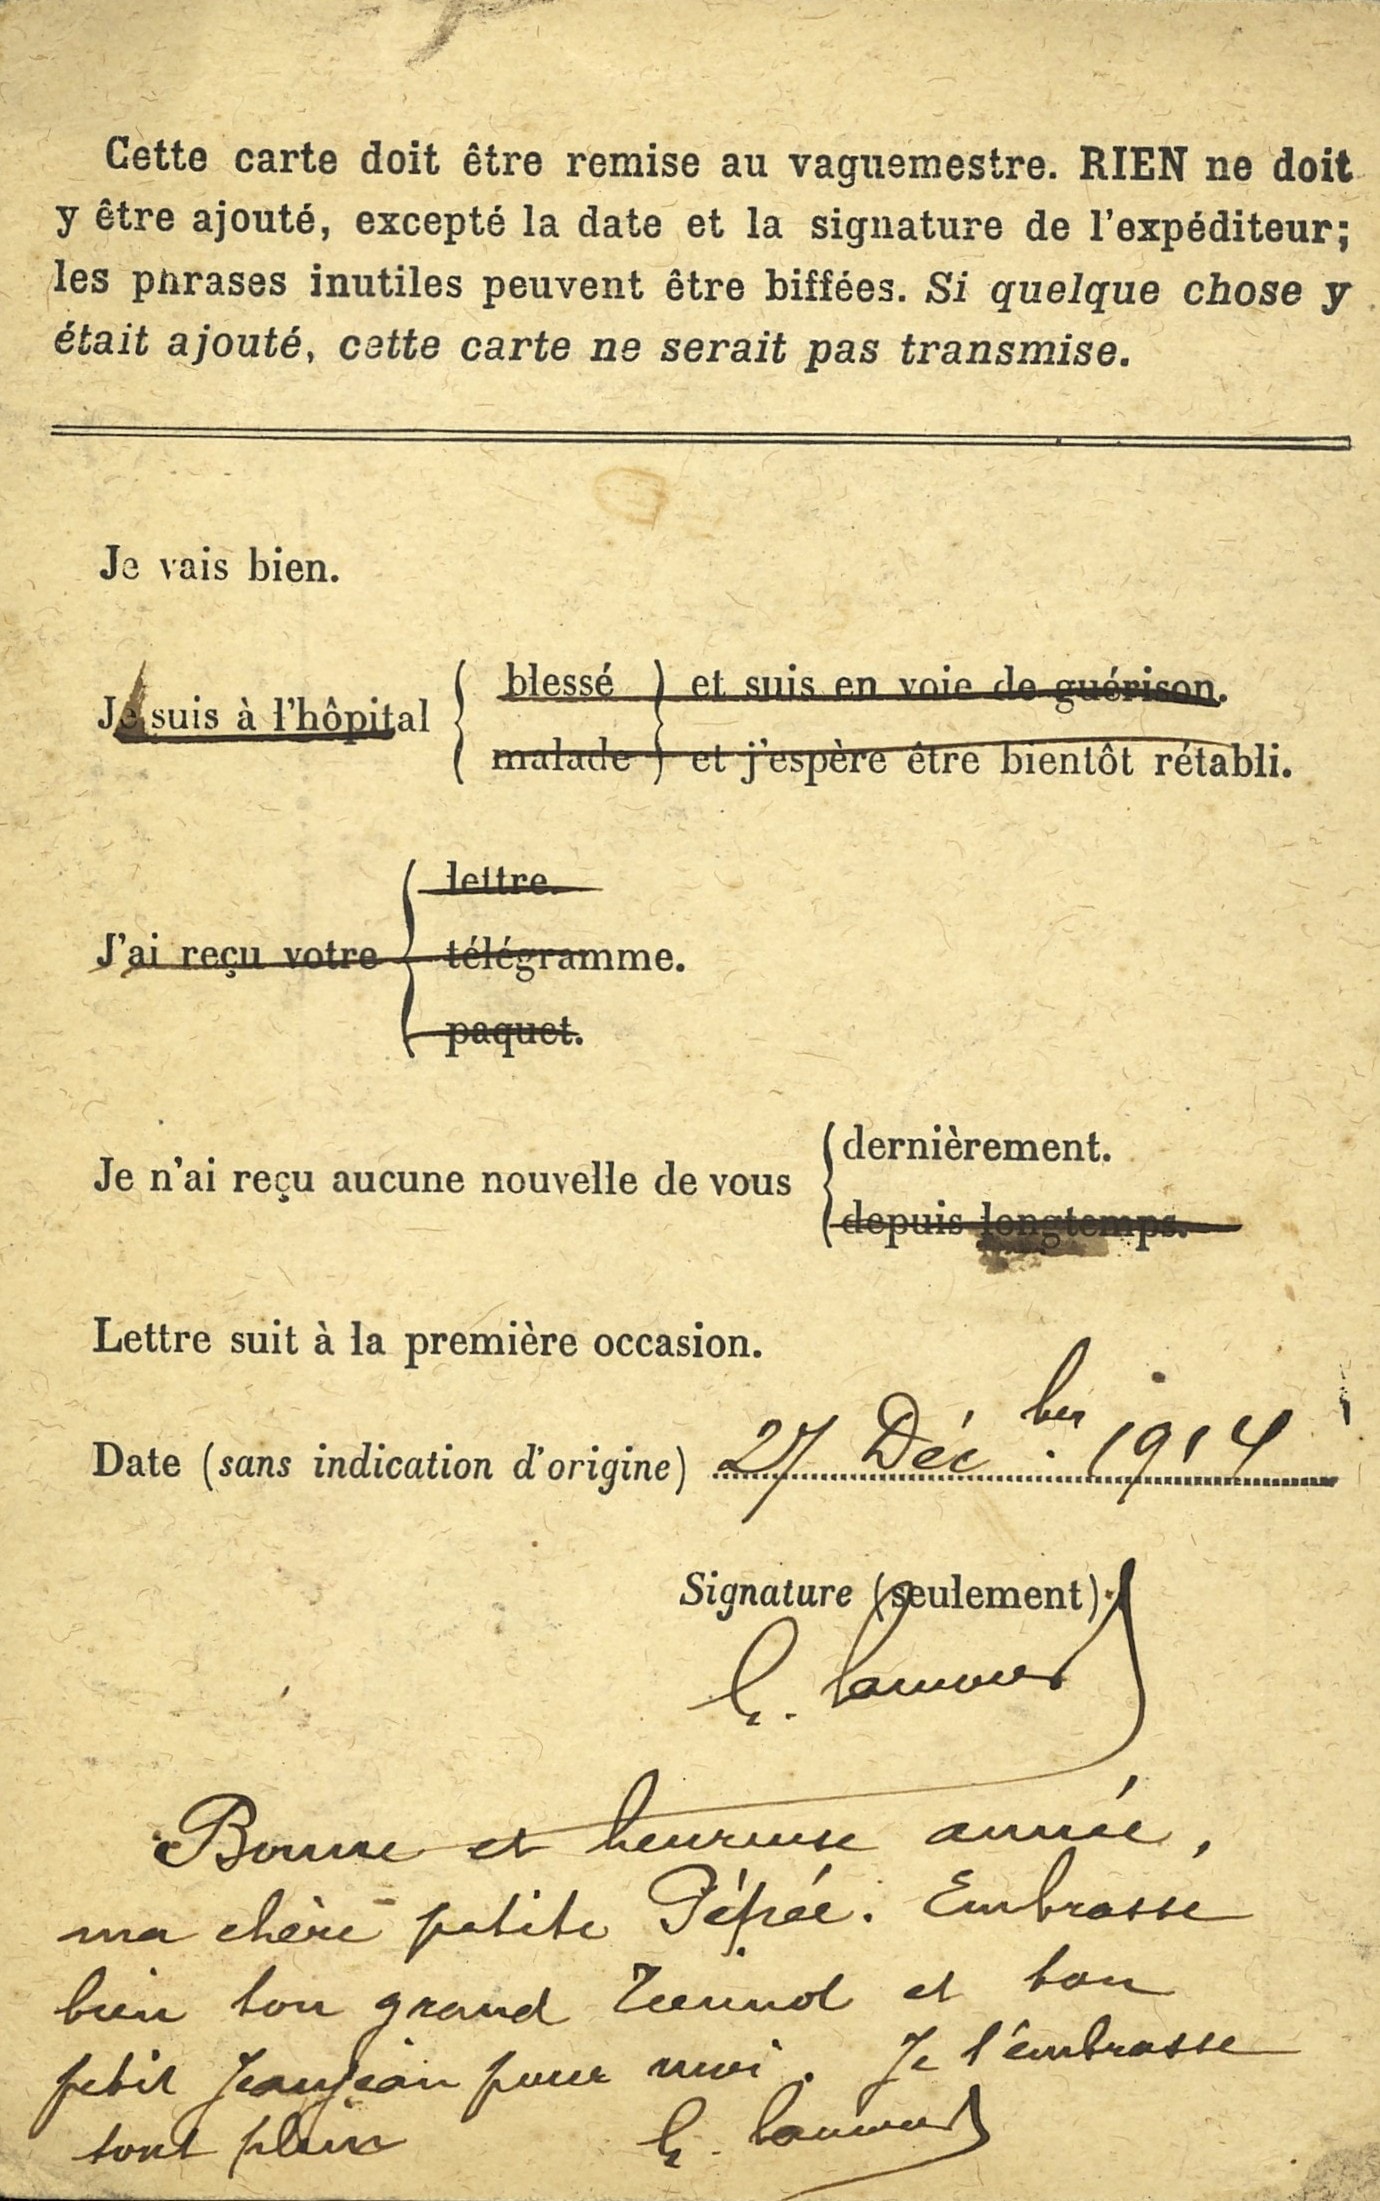 Cette carte doit être remise au vaguemestre. RIEN ne doit
y être ajouté, excepté la date et la signature de l'expéditeur;
les phrases inutiles peuvent être biffées. Si quelque chose y
était ajouté, cette carte ne serait pas transmise.
Je vais bien.
blessé et suis en voie de guérison.
Je suis à l'hôpital
malade et j'espère être bientôt rétabli.
lettre.
J'ai reçu votre télégramme.
paquet.
dernièrement.
Je n'ai reçu aucune nouvelle de vous
depuis longtemps.
Lettre suit à la première occasion.
Date (sans indication d'origine) 27 Déc.ber 1914
Signature (seulement)
Bonne et heureuse année,
ma chère petite Pépée. Embrasse
bien ton grand et ton
petit Jeanjean pour moi. Je t'embrasse
tout plein